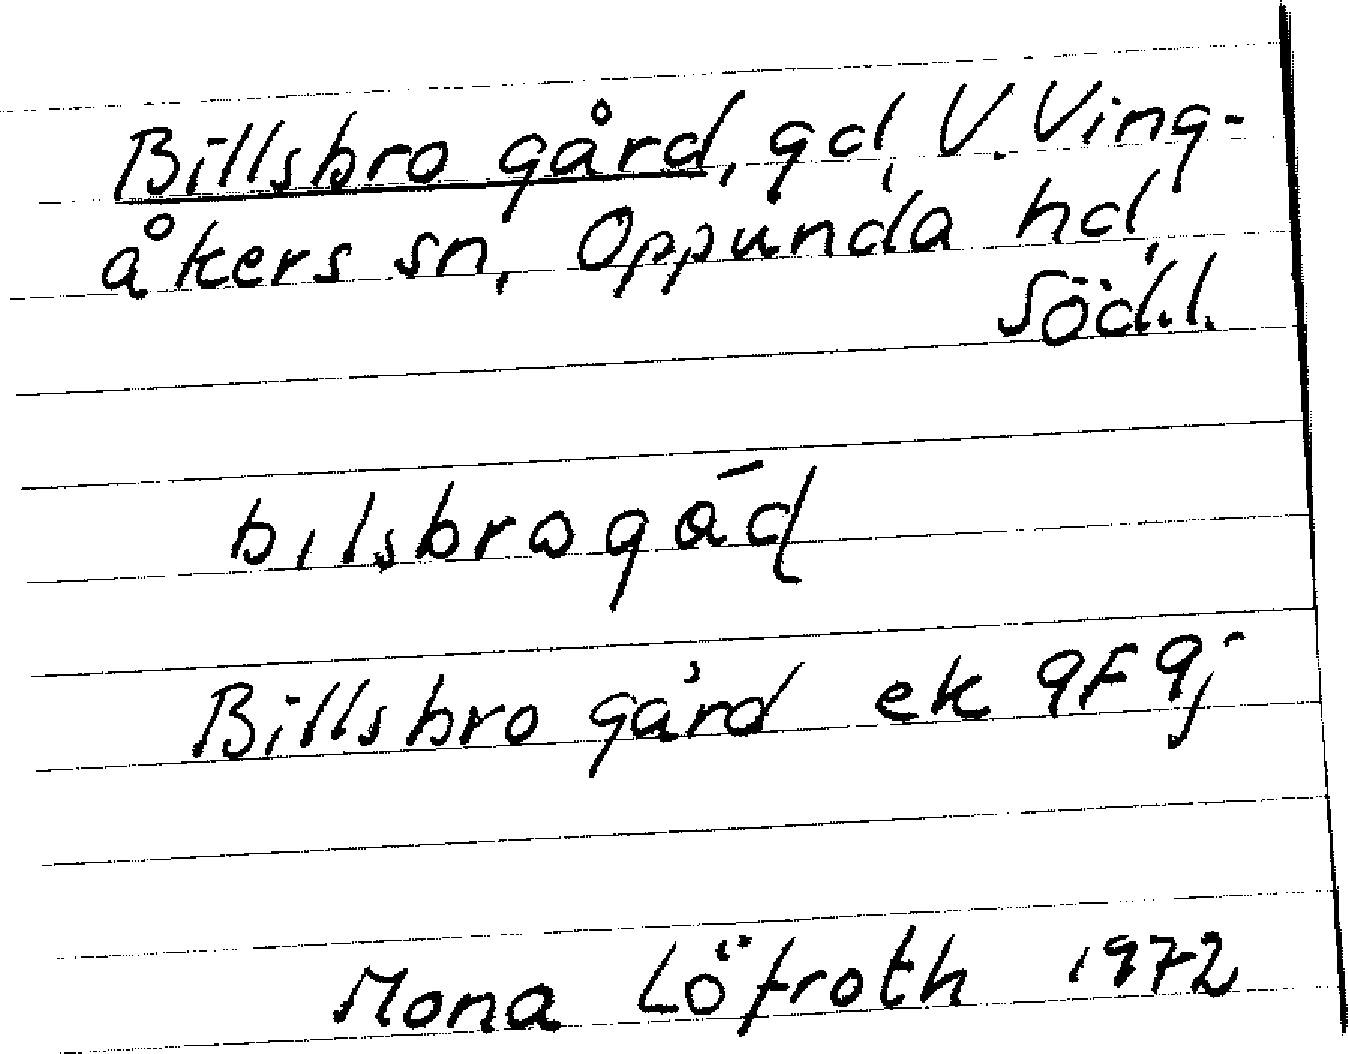 Billsbro gård, gd, V. Ving-
åkers sn, Oppunda hd,
Söd.l.
Billsbro gård ek 9F 9j
Mona Löfroth 1972